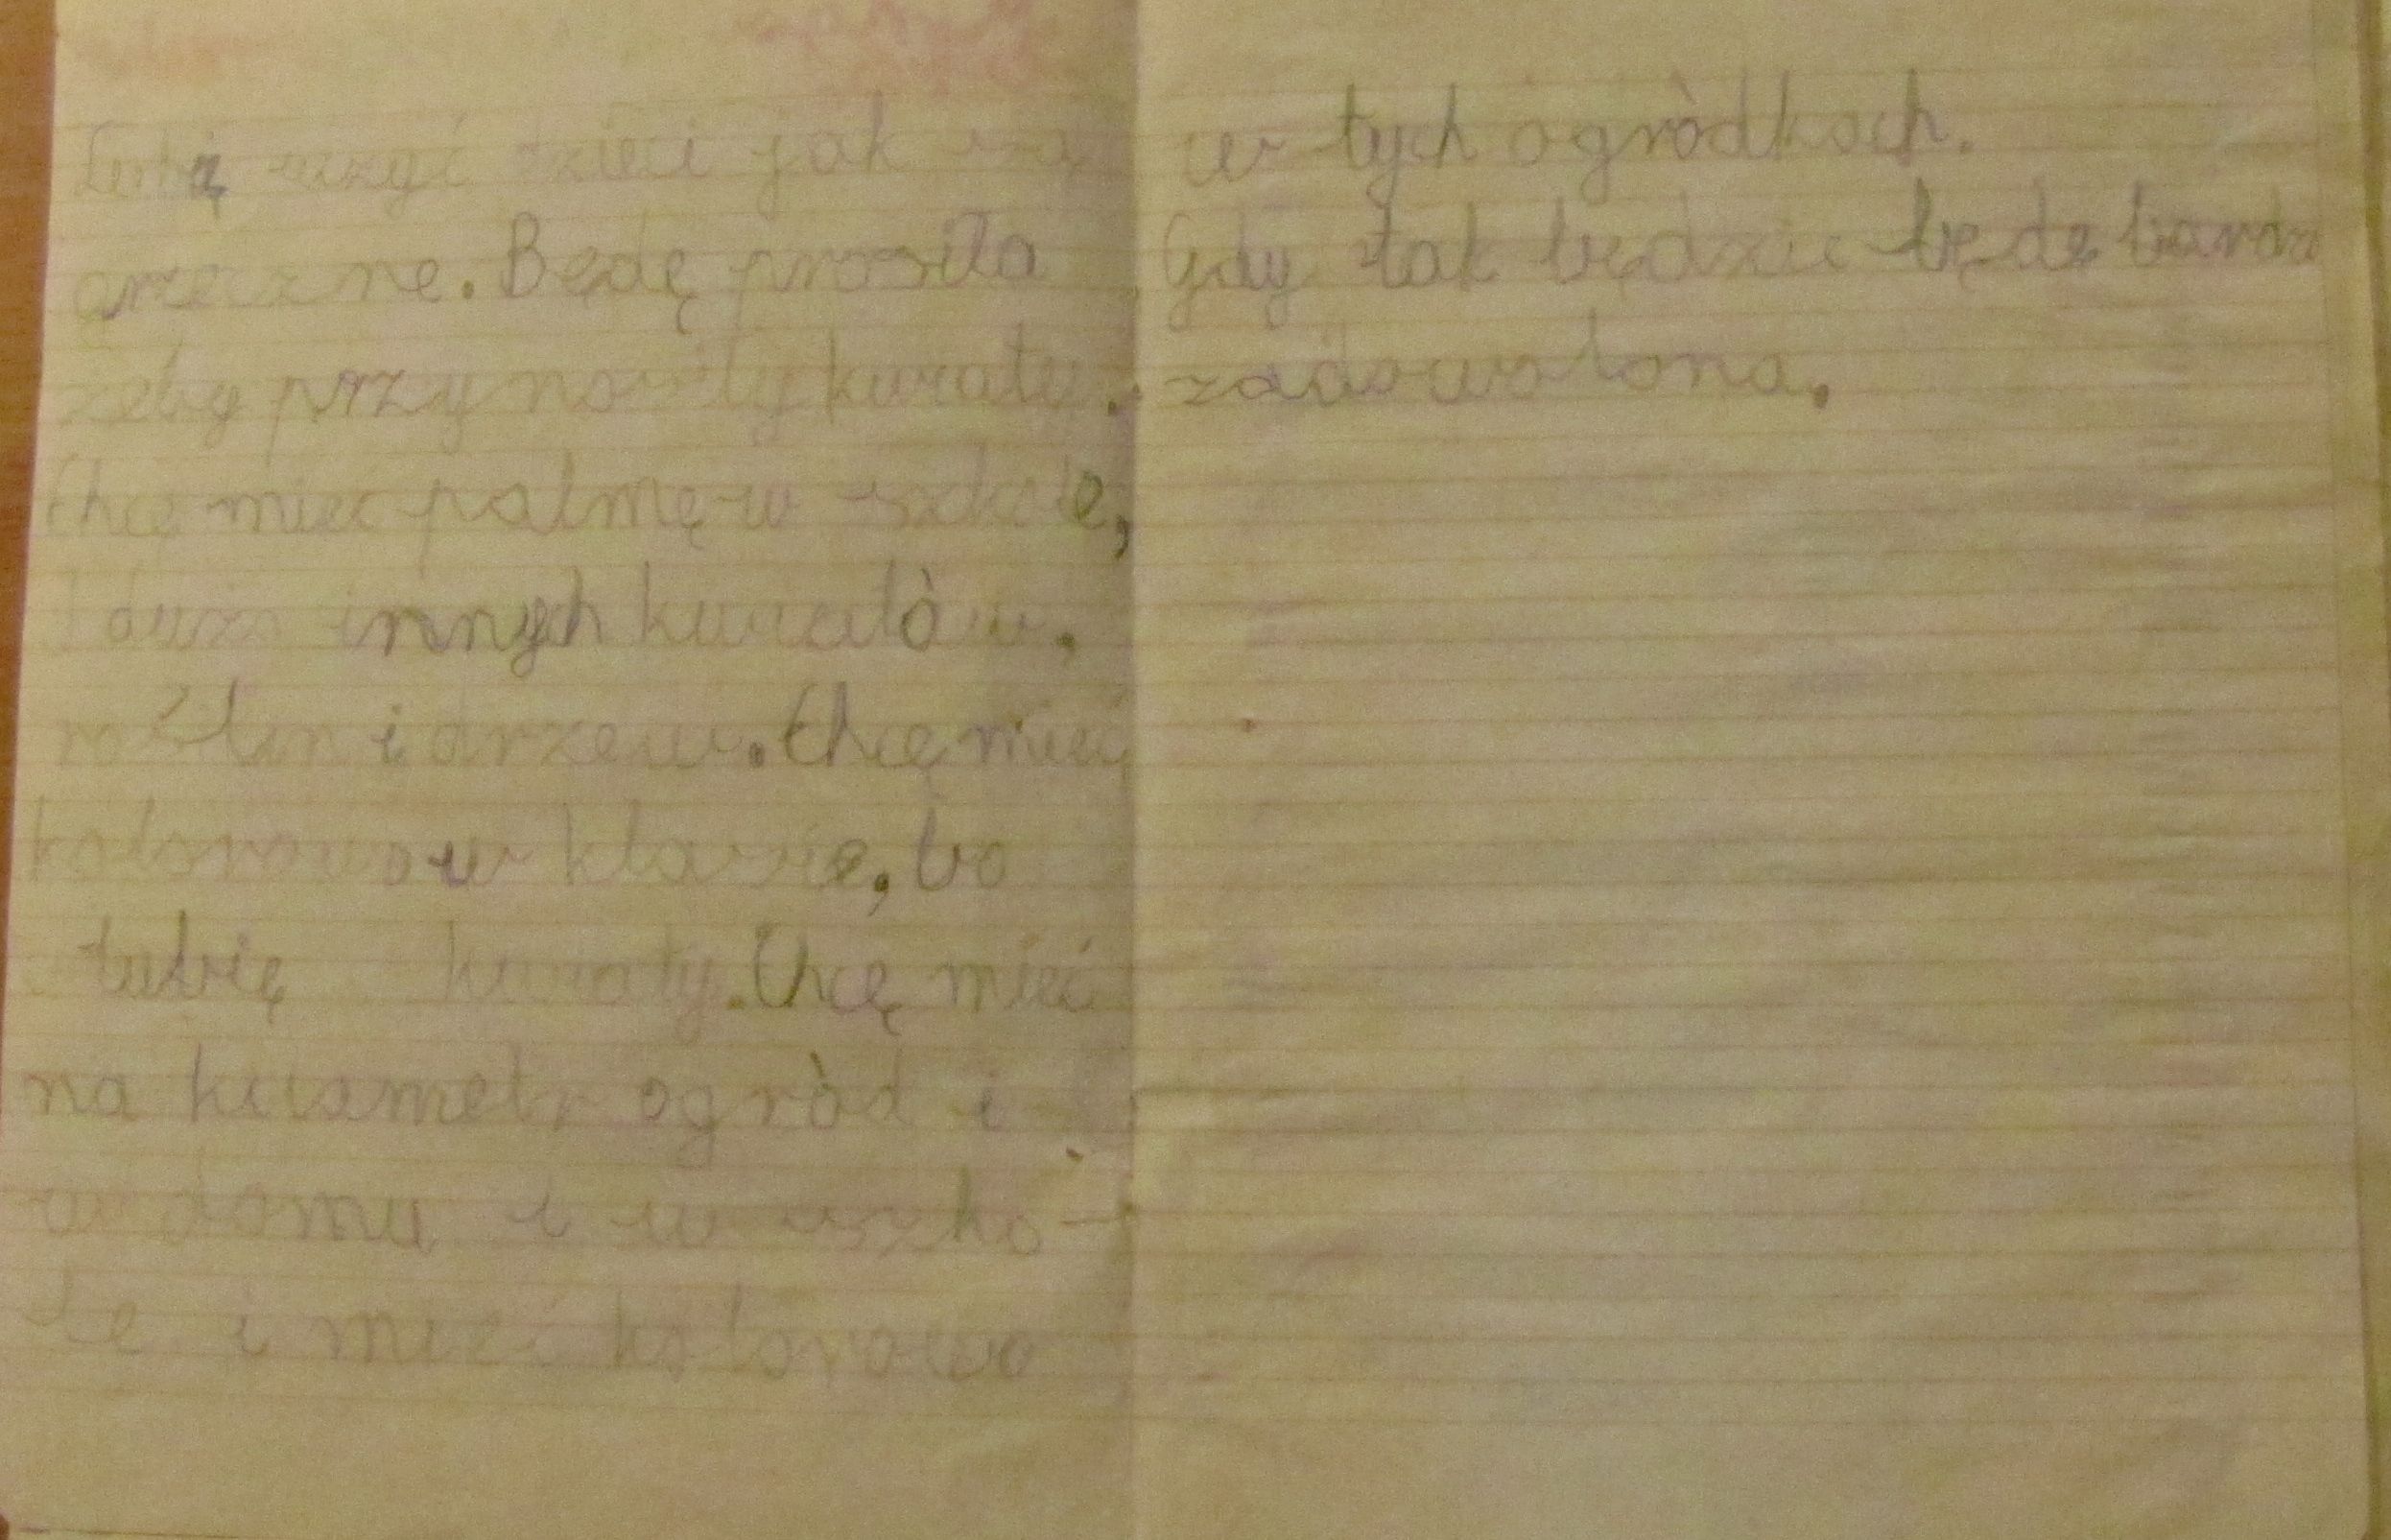 Lubię uczyć dzieci jak są
grzeczne. Będę prosiła
żeby przynosiły kwiatu.
Chcę miec palmę w szkole,
I dużo innych kwiatów,
roślin i drzew. Chcę mieć
kolorowo w klasie, bo
lubię kwiaty. Chcę mieć
na kilometr ogród i
w domu i w szko-
le i mieć kolorowo
w tych ogródkach.
Gdy tak będzie będę bardzo
zadowolona.